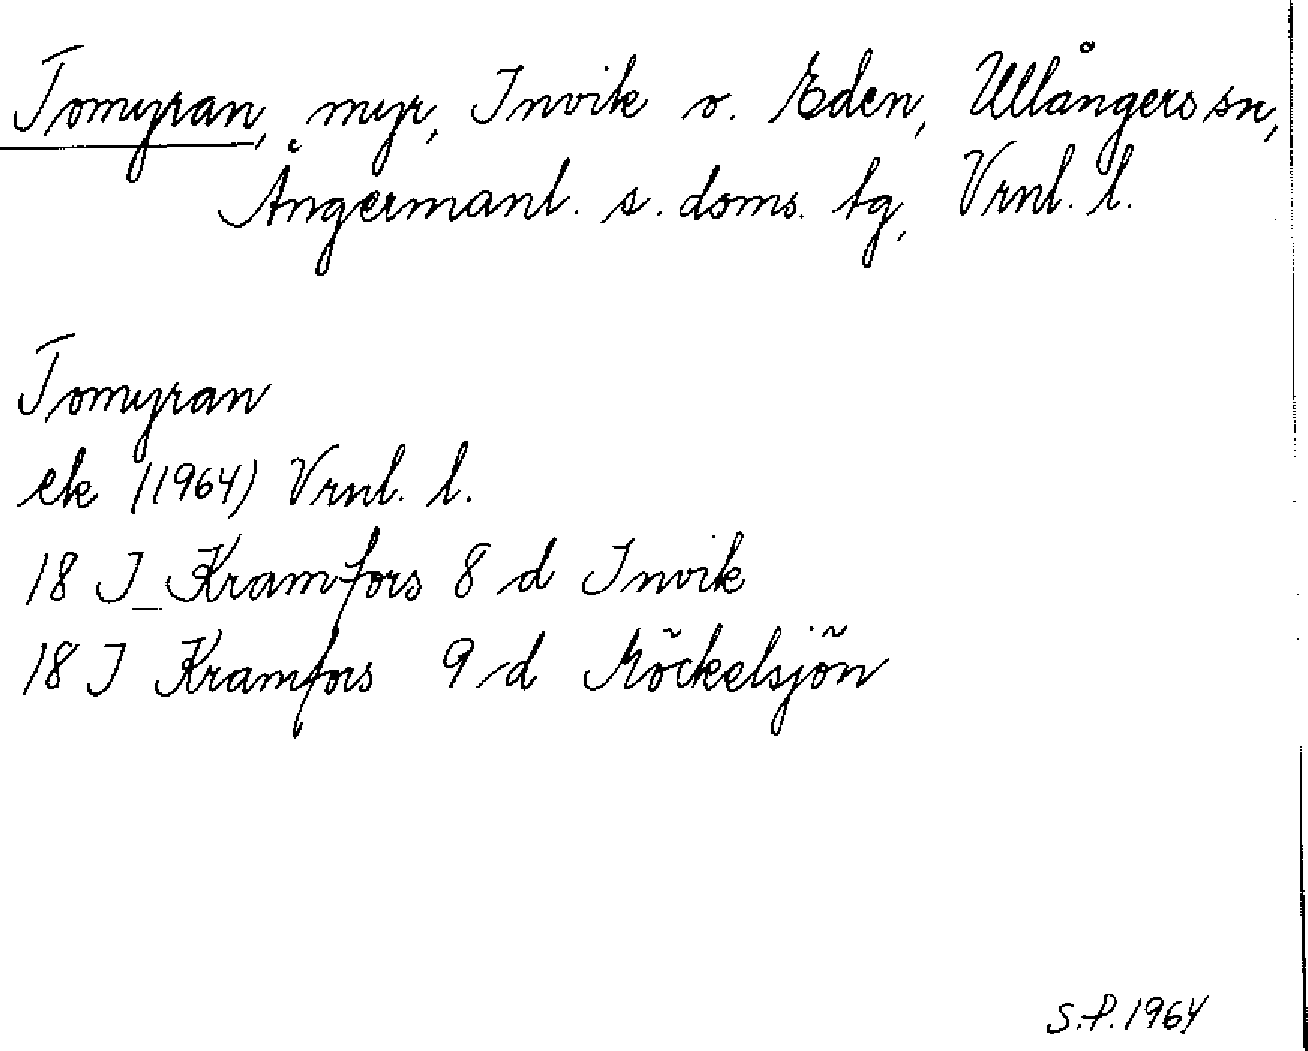 Tomyran, myr, Invik o. Eden, Ullångers sn,
Ångermanl. s. doms. tg, Vrnl. l.
Tomyran
ek (1964) Vrnl. l.
18 I Kramfors 8 d Invik
18 I Kramfors 9 d Möckelsjön
S.P. 1964